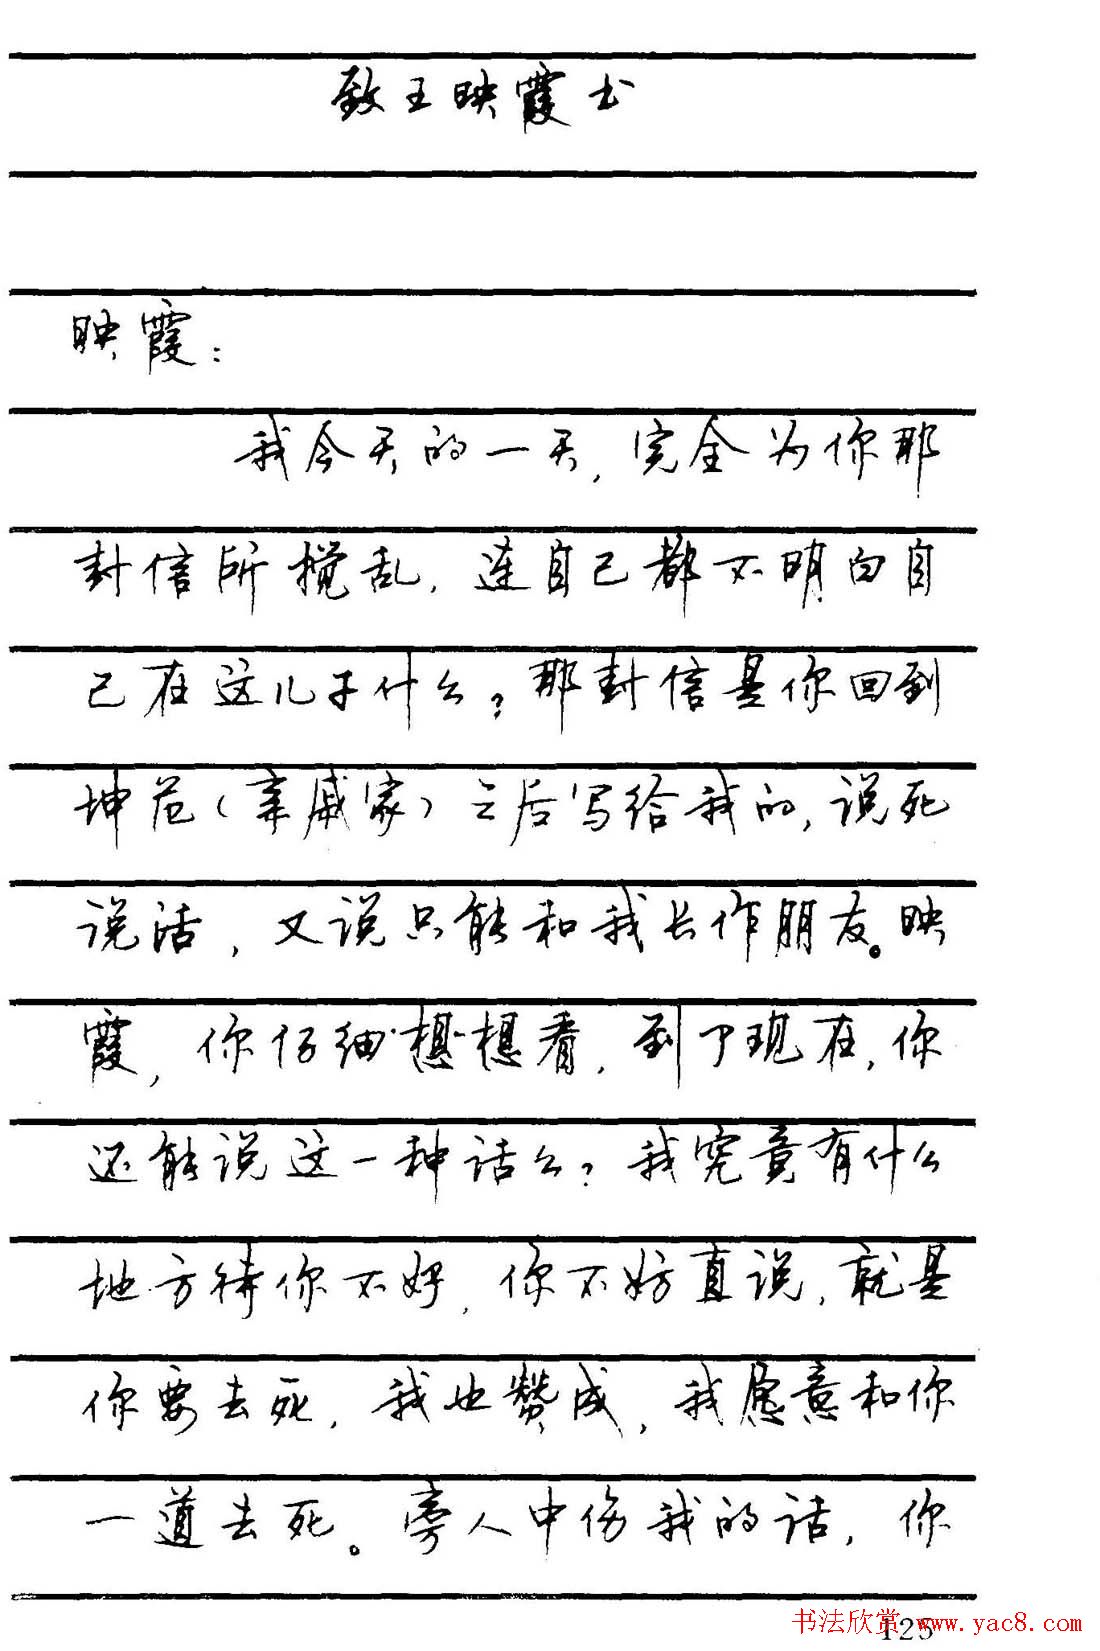 致王映霞书
映霞：
我今天的一天，完全为你那
封信所搅乱，连自己都不明白自
己在这儿干什么？那封信是你回到
坤范（亲戚家）之后写给我的，说死
说活，又说只能和我长作朋友。映
霞，你仔细想想看，到了现在，你
还能说这一种话么？我究竟有什么
地方待你不好，你不妨直说，就是
你要去死，我也赞成，我愿意和你
一道去死。旁人中伤我的话，你
125
书法欣赏 www.yac8.com